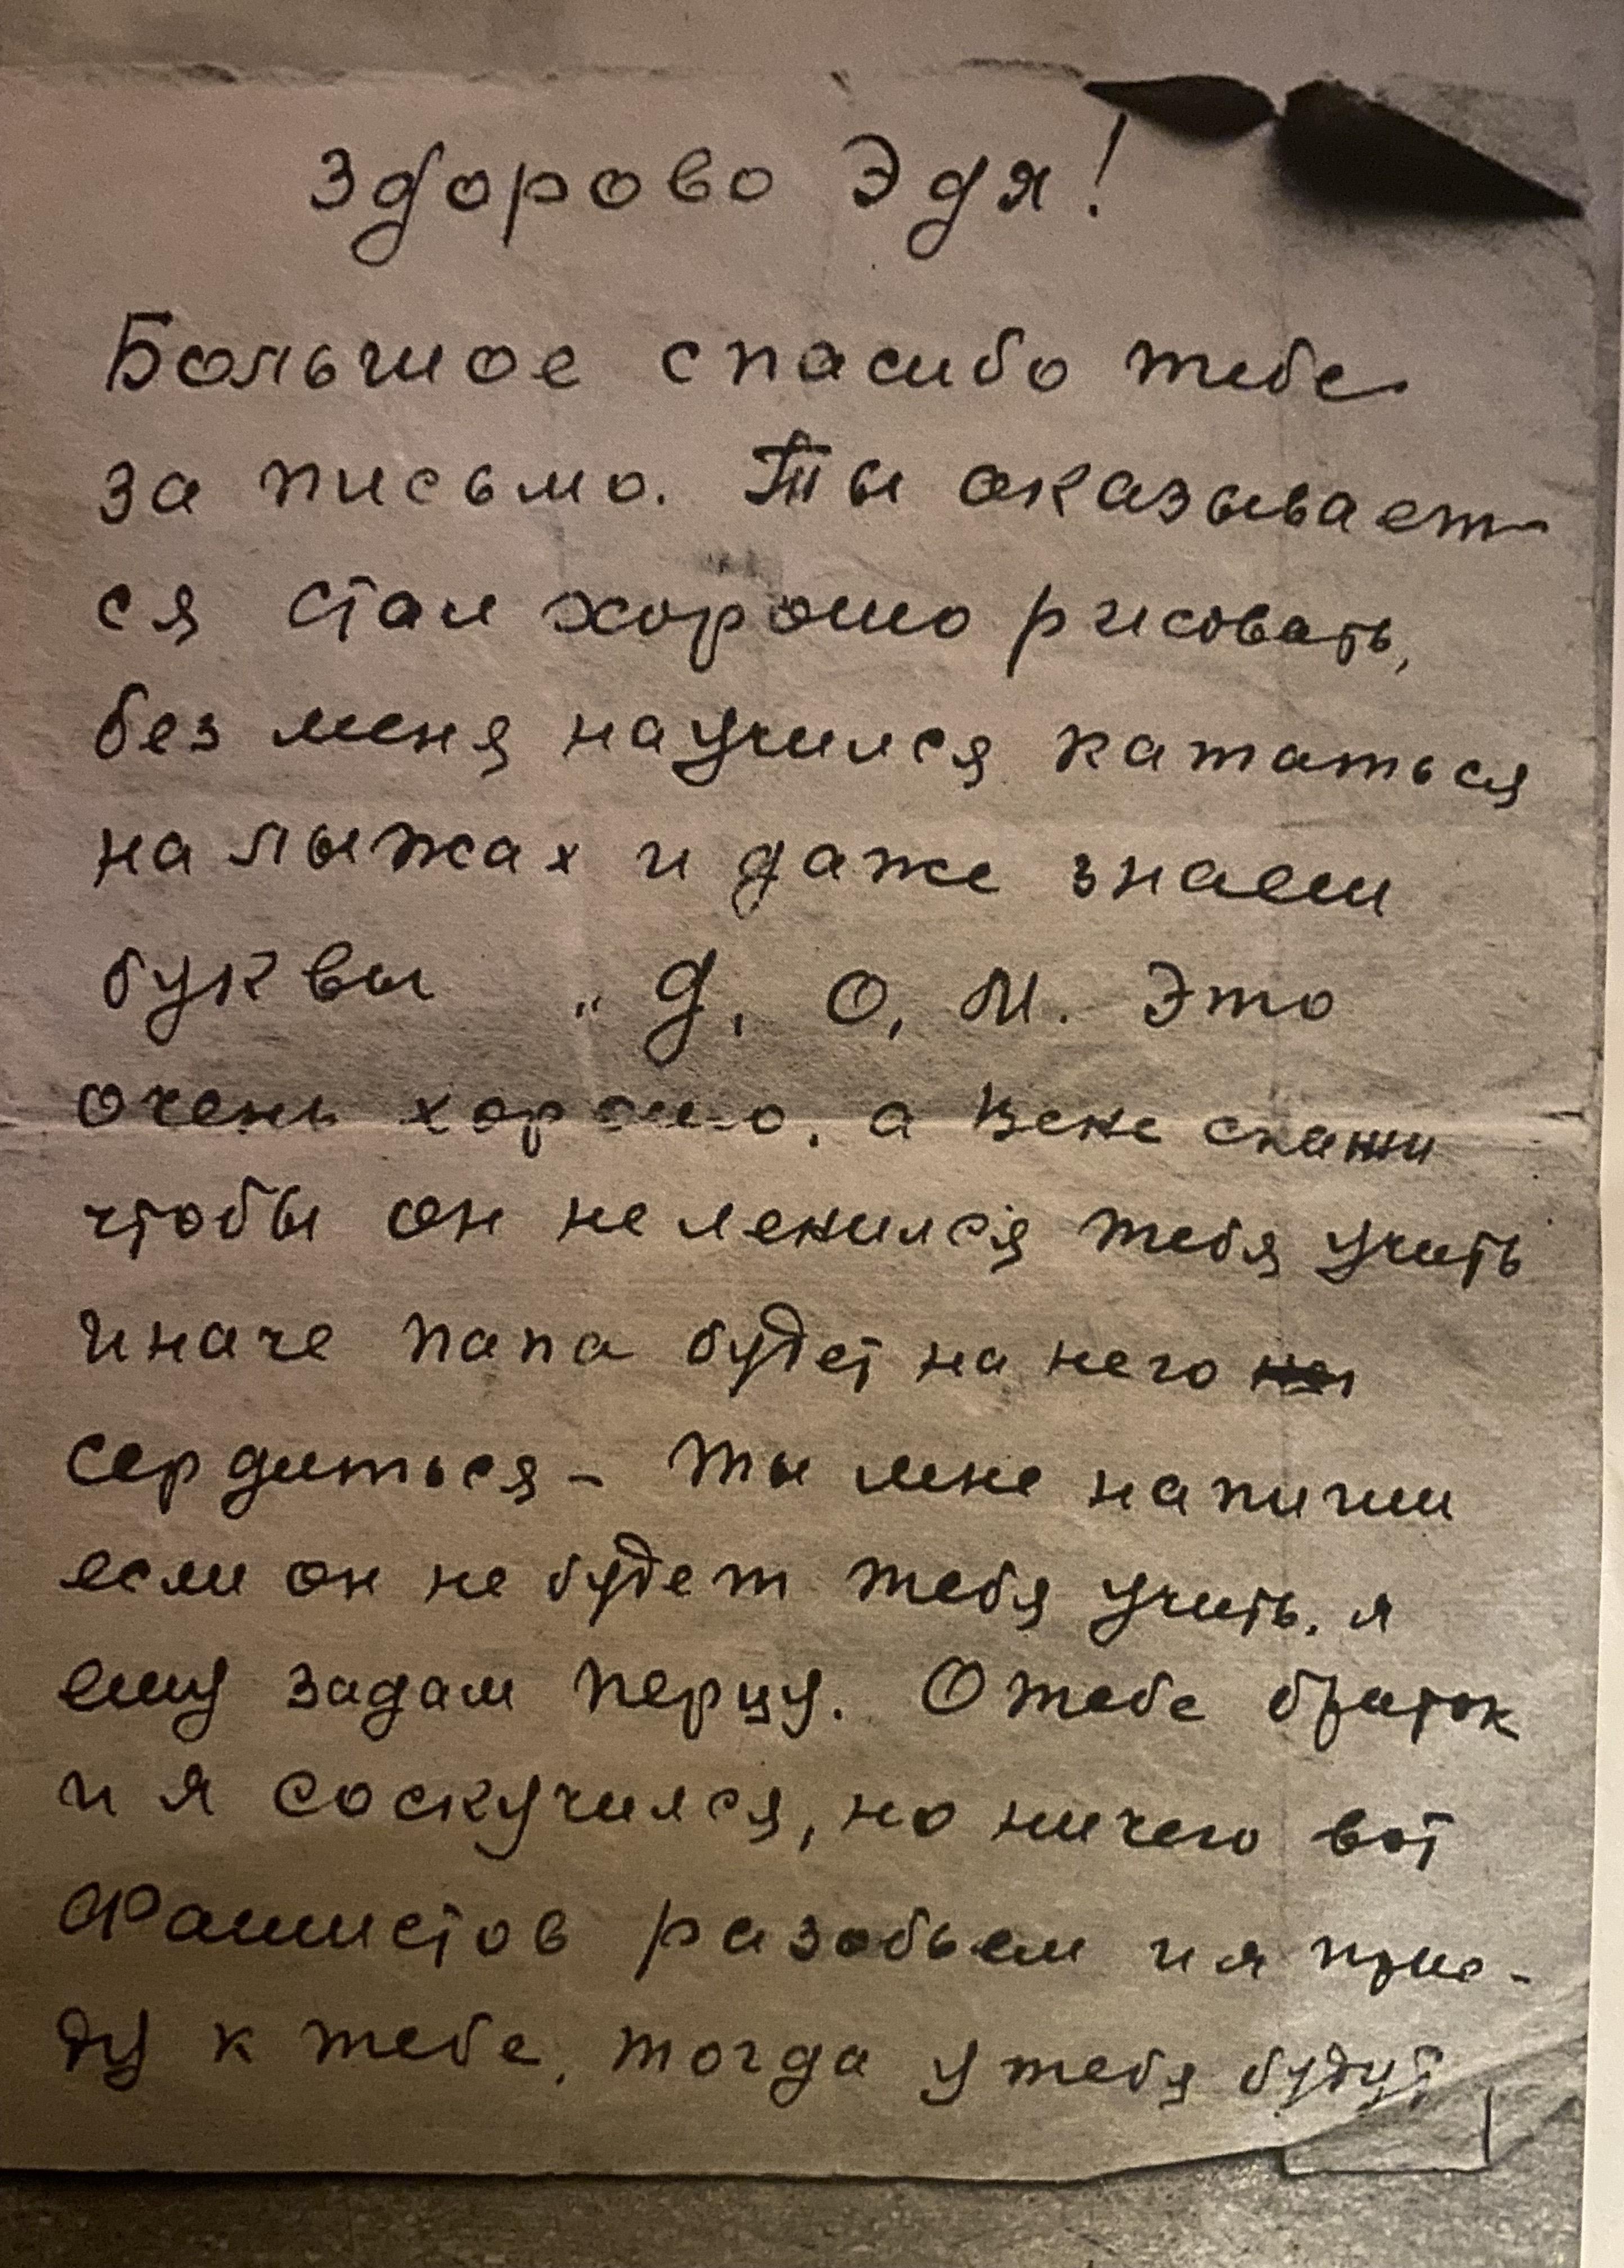 Здорово Эдя!
Большое спасибо тебе
за письмо. Ты оказывает-
ся стал хорошо рисовать,
без меня научился кататься
на лыжах и даже знаеш
буквы „ Д, О, М. Это
очень хорошо, а Веке скажи
чтобы он не ленился тебя учить
иначе папа будет на него
сердиться – ты мне напиши
если он не будет тебя учить, я
ему задам перцу. О тебе браток
и я соскучился, но ничего вот
фашистов разобьем и я прие-
ду к тебе, тогда у тебя будут